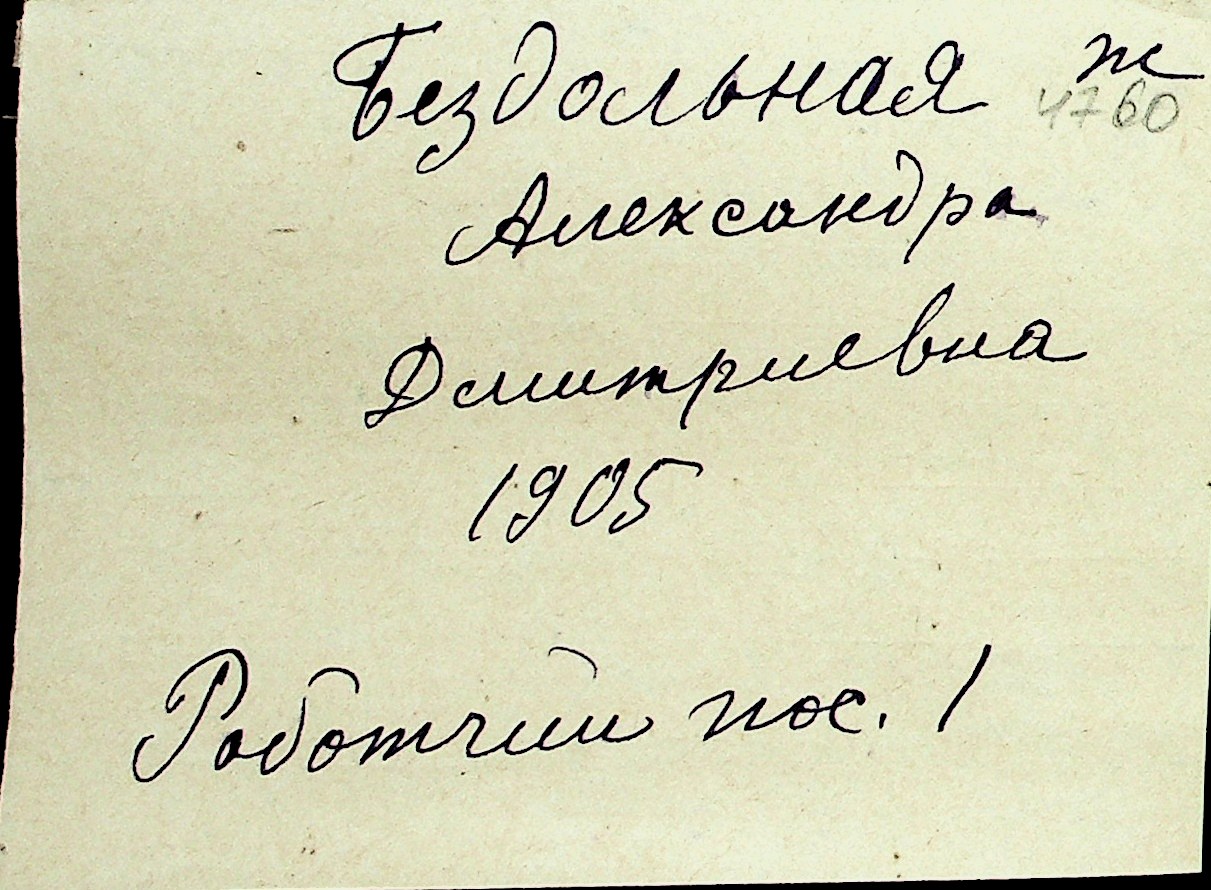 Бездольная ж
4760
Александра
Дмитриевна
1905
Работчий пос. 1